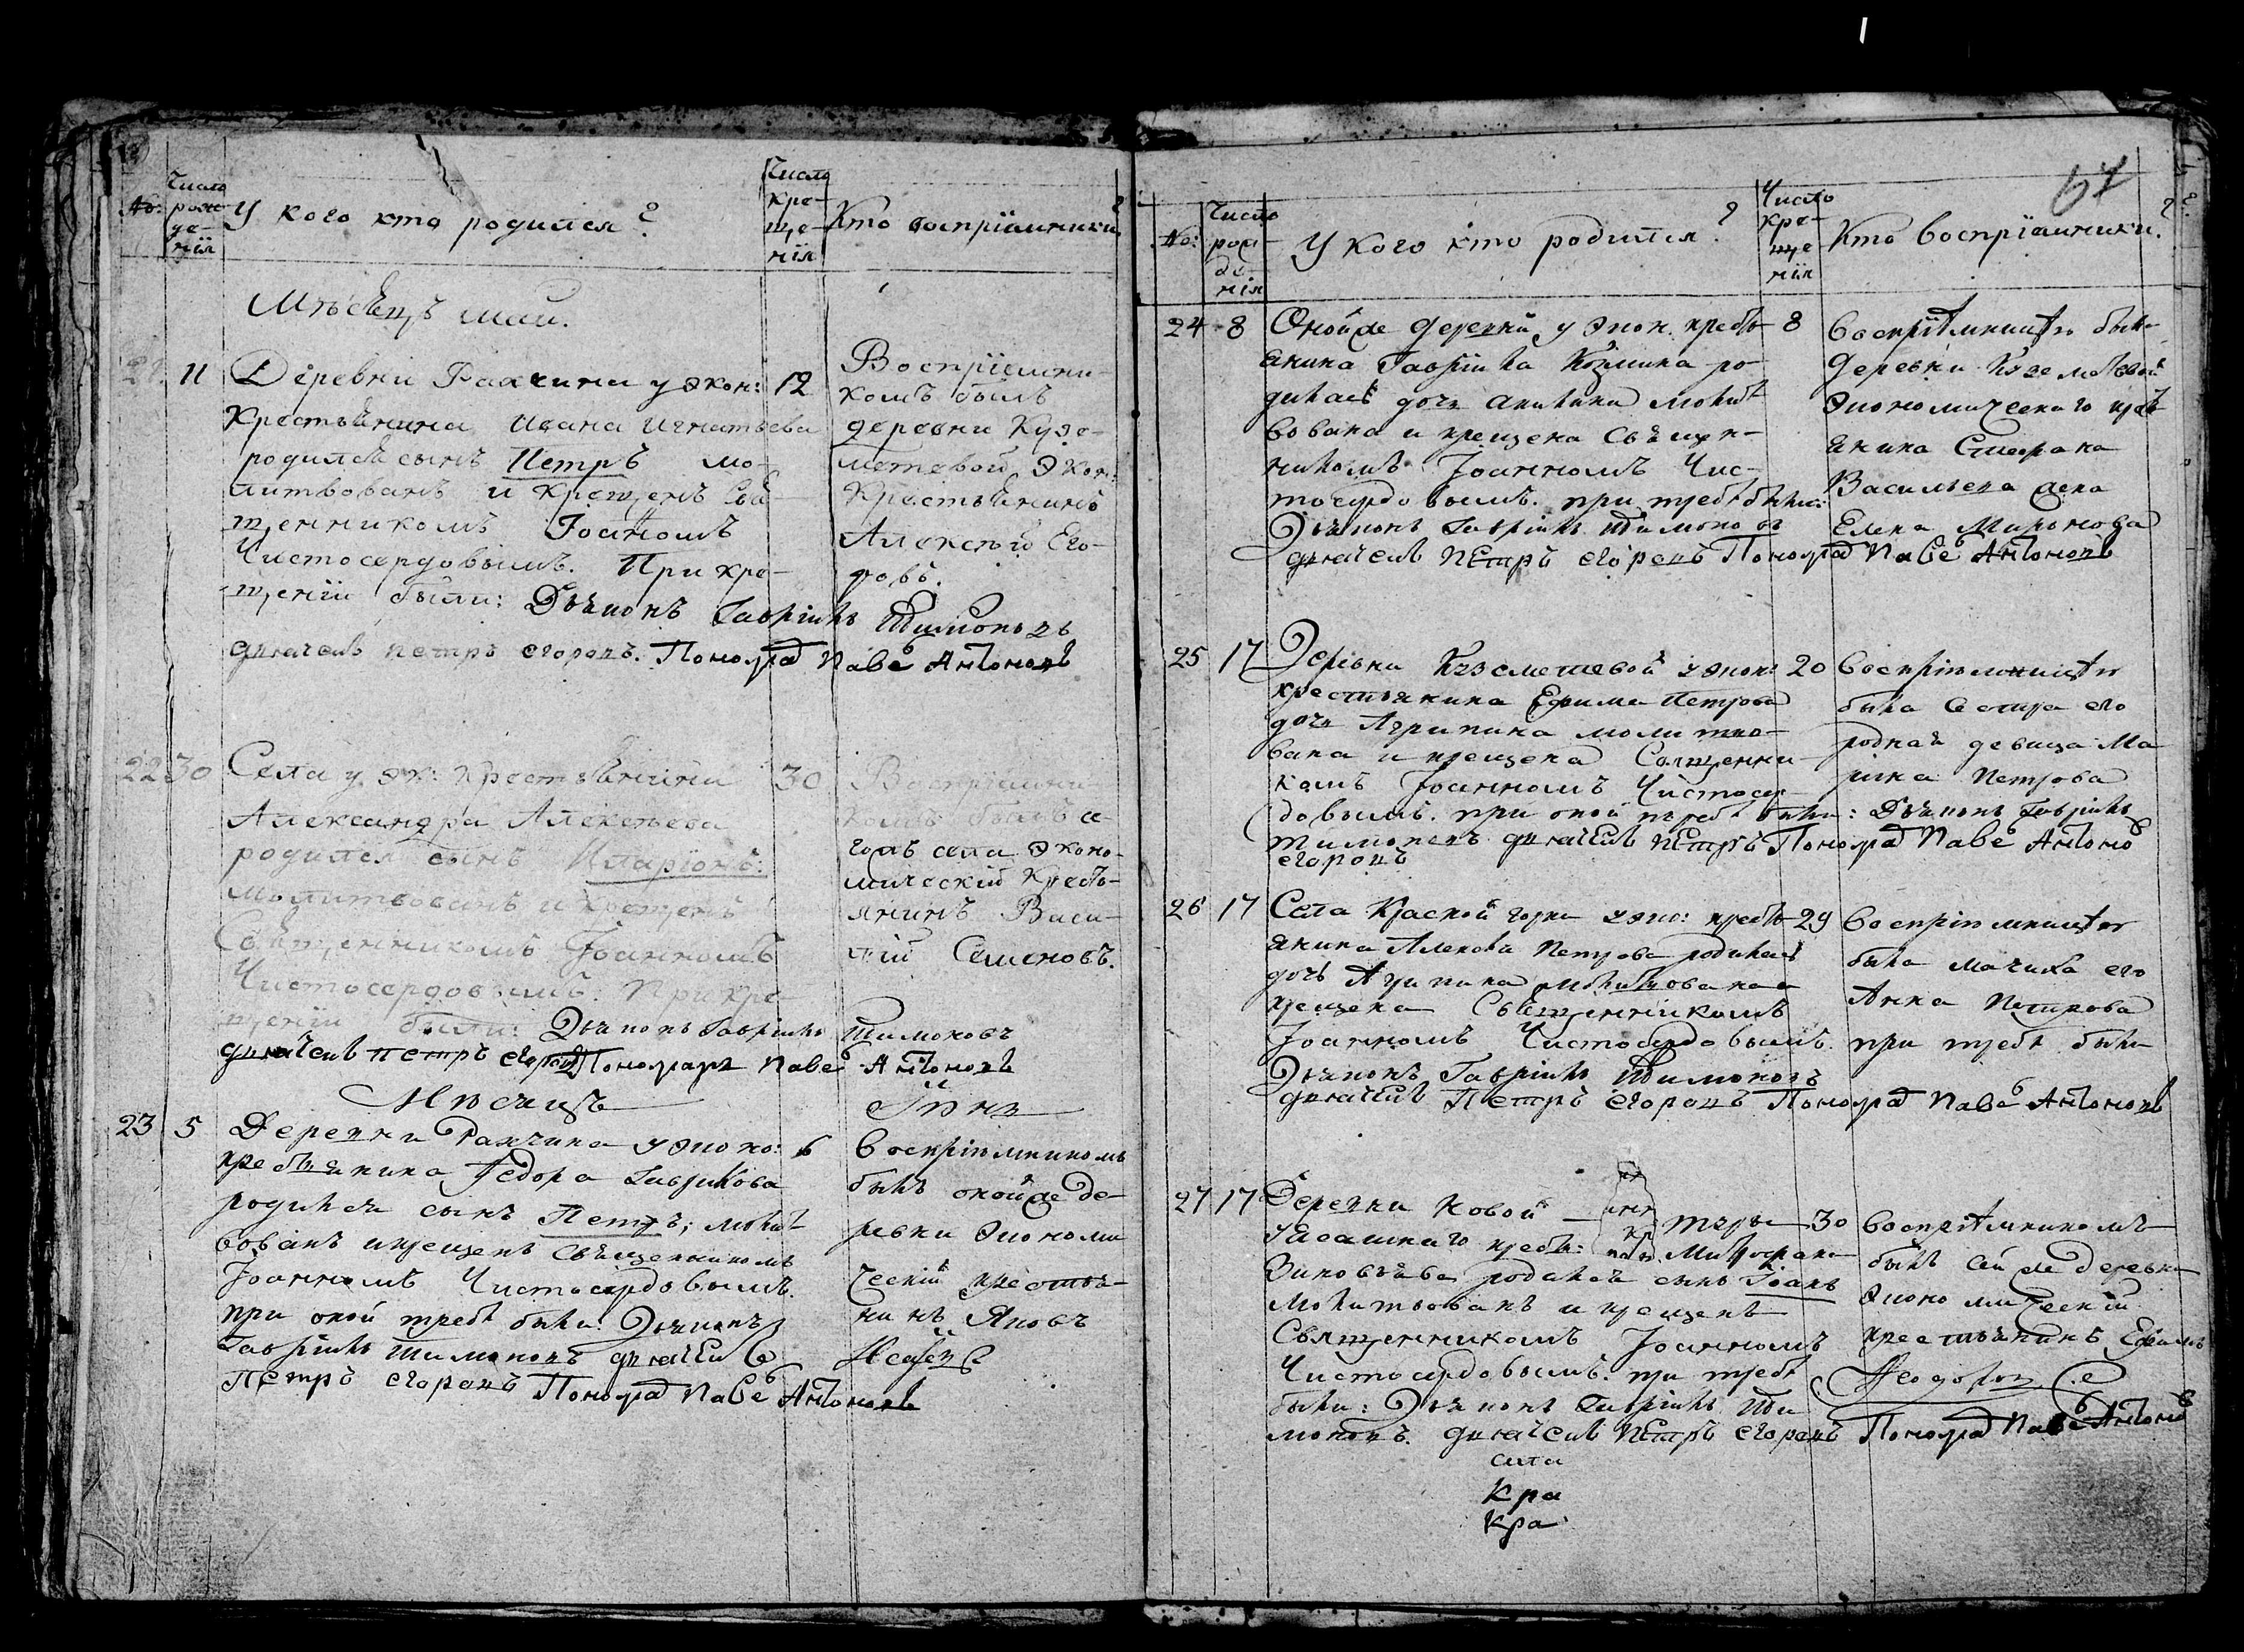 No:
Число
рож-
де-
нiя
У кого кто родился?
Число
кре-
ще-
нiя
Кто воспрiемники?
Мѣсецъ май.
21.
11
Деревни Рахчина у экон:
крестьянина Ивана Игнатьева
родился сынъ Петръ мо-
литвованъ и крещенъ Свя-
щенникомъ Iоанномъ
Чистосердовымъ. При кре-
щенiи были: Дьяконъ Гаврiилъ Тимоновъ
дьячекъ Петръ Егоровъ. Пономарь Павелъ Антоновъ
12
Воспрiемни-
комъ былъ
деревни Кузе-
метевой экон:
Крестьянинъ
Алексѣй Его-
ровъ.
22
30
Села у эк: крестьянина
Александра Алексѣева
родился сынъ Иларiонъ:
молитвованъ и крещенъ
Священникомъ Iоанномъ
Чистосердовымъ. При кре
щенiи были: Дьяконъ Гаврiилъ Тимоновъ
дьячекъ Петръ Егоровъ Пономарь Павелъ Антоновъ
30
Воспрiемни-
комъ былъ се-
гожъ села эконо-
мическiй кресть-
янинъ Васи-
лiй Семеновъ.
Мѣсяцъ Iюнь
23
5
Деревни Рахчина у эконо:
крестьянина Федора Гаврилова
родился сынъ Петръ; молит
вованъ и крещенъ священникомъ
Iоанномъ Чистосердовымъ.
при оной требѣ были: Дьяконъ
Гаврiилъ Тимоновъ дьячекъ
Петръ Егоровъ Пономарь Павелъ Антоновъ
6
воспрiемникомъ
былъ онойже де-
ревни экономи
ческiй крестья-
нинъ Яковъ
67
No:
Число
рож-
де-
нiя
У кого кто родился?
Число
кре-
ще
нiя
Кто воспрiемники?
24
8
Онойже деревни у экон. кресть-
янина Гаврiила Козмина ро-
дилась дочь Акилина молит
вована и крещена священ-
никомъ Iоанномъ Чис-
тосердовымъ. при требѣ были:
Дьяконъ Гаврiилъ Тимоновъ
дьячекъ Петръ Егоровъ Пономарь Павелъ Антоновъ
8
воспрiемница была
деревни Куземетевой
экономическаго крест
янина Стефана
Васильева жена
Елена Миронова
25
17
Деревни Куземетевой у экон:
крестьянина Ефима Петрова
дочь Агрипина молитво-
вана и крещена Священни-
комъ Iоанномъ Чистосер-
довымъ. при оной требѣ были: Дьяконъ Гаврiилъ
Тимоновъ дьячекъ Петръ Пономарь Павелъ Антоно
Егоровъ
20
воспрiемница
была Сестра его
родная девица Ма
рина Петрова
26
17
Села Красной горки у эко: кресть-
янина Алексѣя Петрова родилась
дочь Агрипина молитвована и
крещена Священникомъ
Iоанномъ Чистосердовымъ.
Дьяконъ Гаврiилъ Тимоновъ
дьячекъ Петръ Егоровъ Пономарь Павелъ Антоновъ
29
воспрiемница
была мачиха его
Анна Петрова
при требѣ были
27
17
Деревни Новой
ясашнаго кресть: Митрофана
Зиновьева родился сынъ Iоанъ
молитвованъ и крещенъ
Священникомъ Iоанномъ
Чистосердовымъ. при требѣ
были: Дьяконъ Гаврiилъ Ти
моновъ. дьячекъ Петръ Егоровъ Пономарь Павелъ Антоно
30
воспрiемникомъ
былъ сей же деревни
экономическiй
крестьянинъ Ефимъ
Феодоровъ
села
Кра
Кра